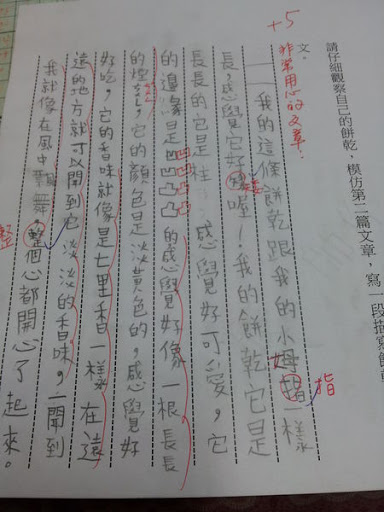 請仔細觀察自己的餅乾,模仿第二篇文章,寫一段描寫
文。
+5
非常用心的文章!
我的這條餅乾跟我的小姆指一樣
指
長,感覺它好矮喔!我的餅乾它是
長長的它是柱 感覺好可愛,它
的邊緣是凹凹凸凸的感覺好像一根長長
凹凹凸凸
的煙 ,它的顏色是淡黃色的,感覺好
好吃,它的香味就像是七里香一樣在遠
遠的地方就可以聞到它淡淡的香味,一聞到
我就像在風中飄舞整個心都開心了起來。
整